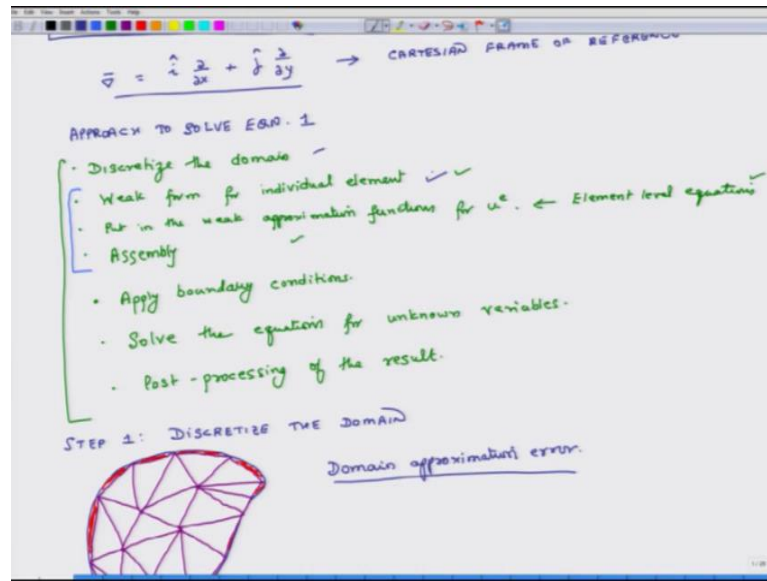 ∇̄ = î ∂/∂x + ĵ ∂/∂y → CARTESIAN FRAME OF REFERENCE
APPROACH TO SOLVE EQN. 1
· Discretize the domain
· Weak form for individual element
· Put in the weak approximation functions for uᵉ. ← Element level equations
· Assembly
· Apply boundary conditions.
· Solve the equations for unknown variables.
· Post-processing of the result.
STEP 1: DISCRETIZE THE DOMAIN
Domain approximation error.